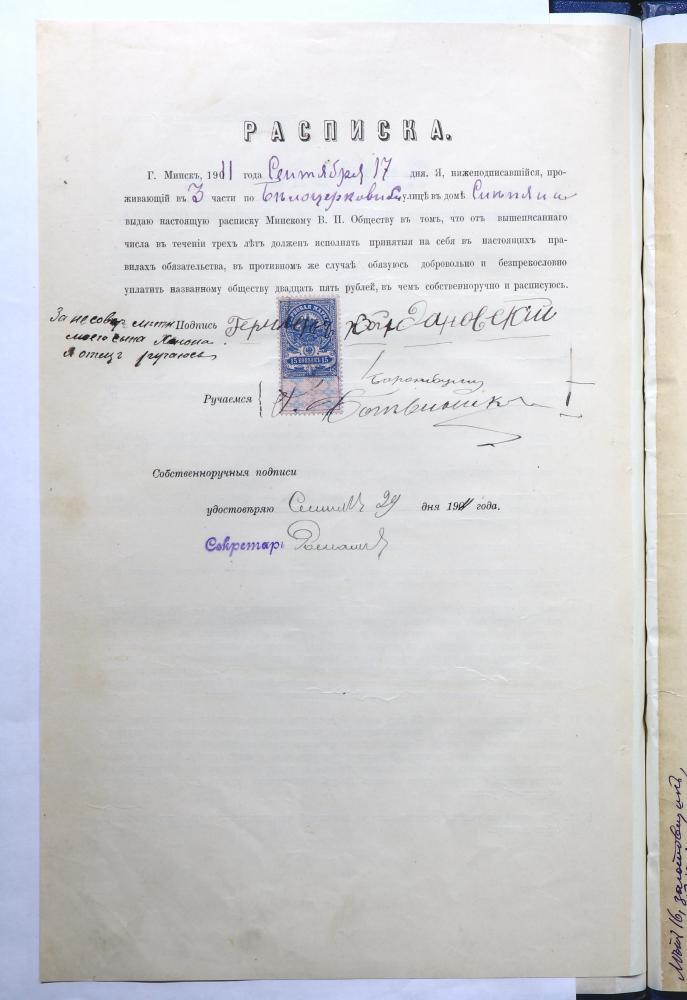 РАСПИСКА.
Г. Минскъ, 1911 года Сентября 17 дня. Я, нижеподписавшійся, про-
живающій въ 3 части по улицѣ въ домѣ
выдаю настоящую расписку Минскому В. П. Обществу въ томъ, что отъ вышеписаннаго
числа въ теченіи трехъ лѣтъ долженъ исполнять принятыя на себя въ настоящихъ пра-
вилахъ обязательства, въ противномъ же случаѣ обязуюсь добровольно и безпрекословно
уплатить названному обществу двадцать пять рублей, въ чемъ собственноручно и расписуюсь.
За несовер
моего сына
Я отецъ ручаюсь
Подпись
15 КОПѢЕКЪ 15
Ручаемся
Собственноручныя подписи
удостовѣряю 29 дня 1911 года.
Секретарь